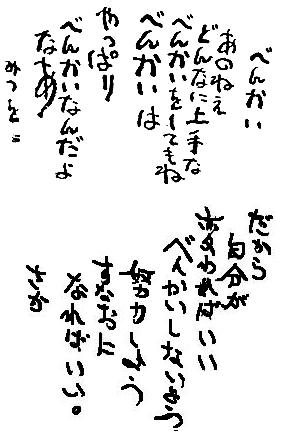 べんかい
あのねえ
どんなに上手な
べんかいをしてもね
べんかいは
やっぱり
べんかいなんだよ
なあ
みつを
だから
自分が
あやまればいい
べんかいしないよう
努力しよう
すなおに
なればいい。
さか